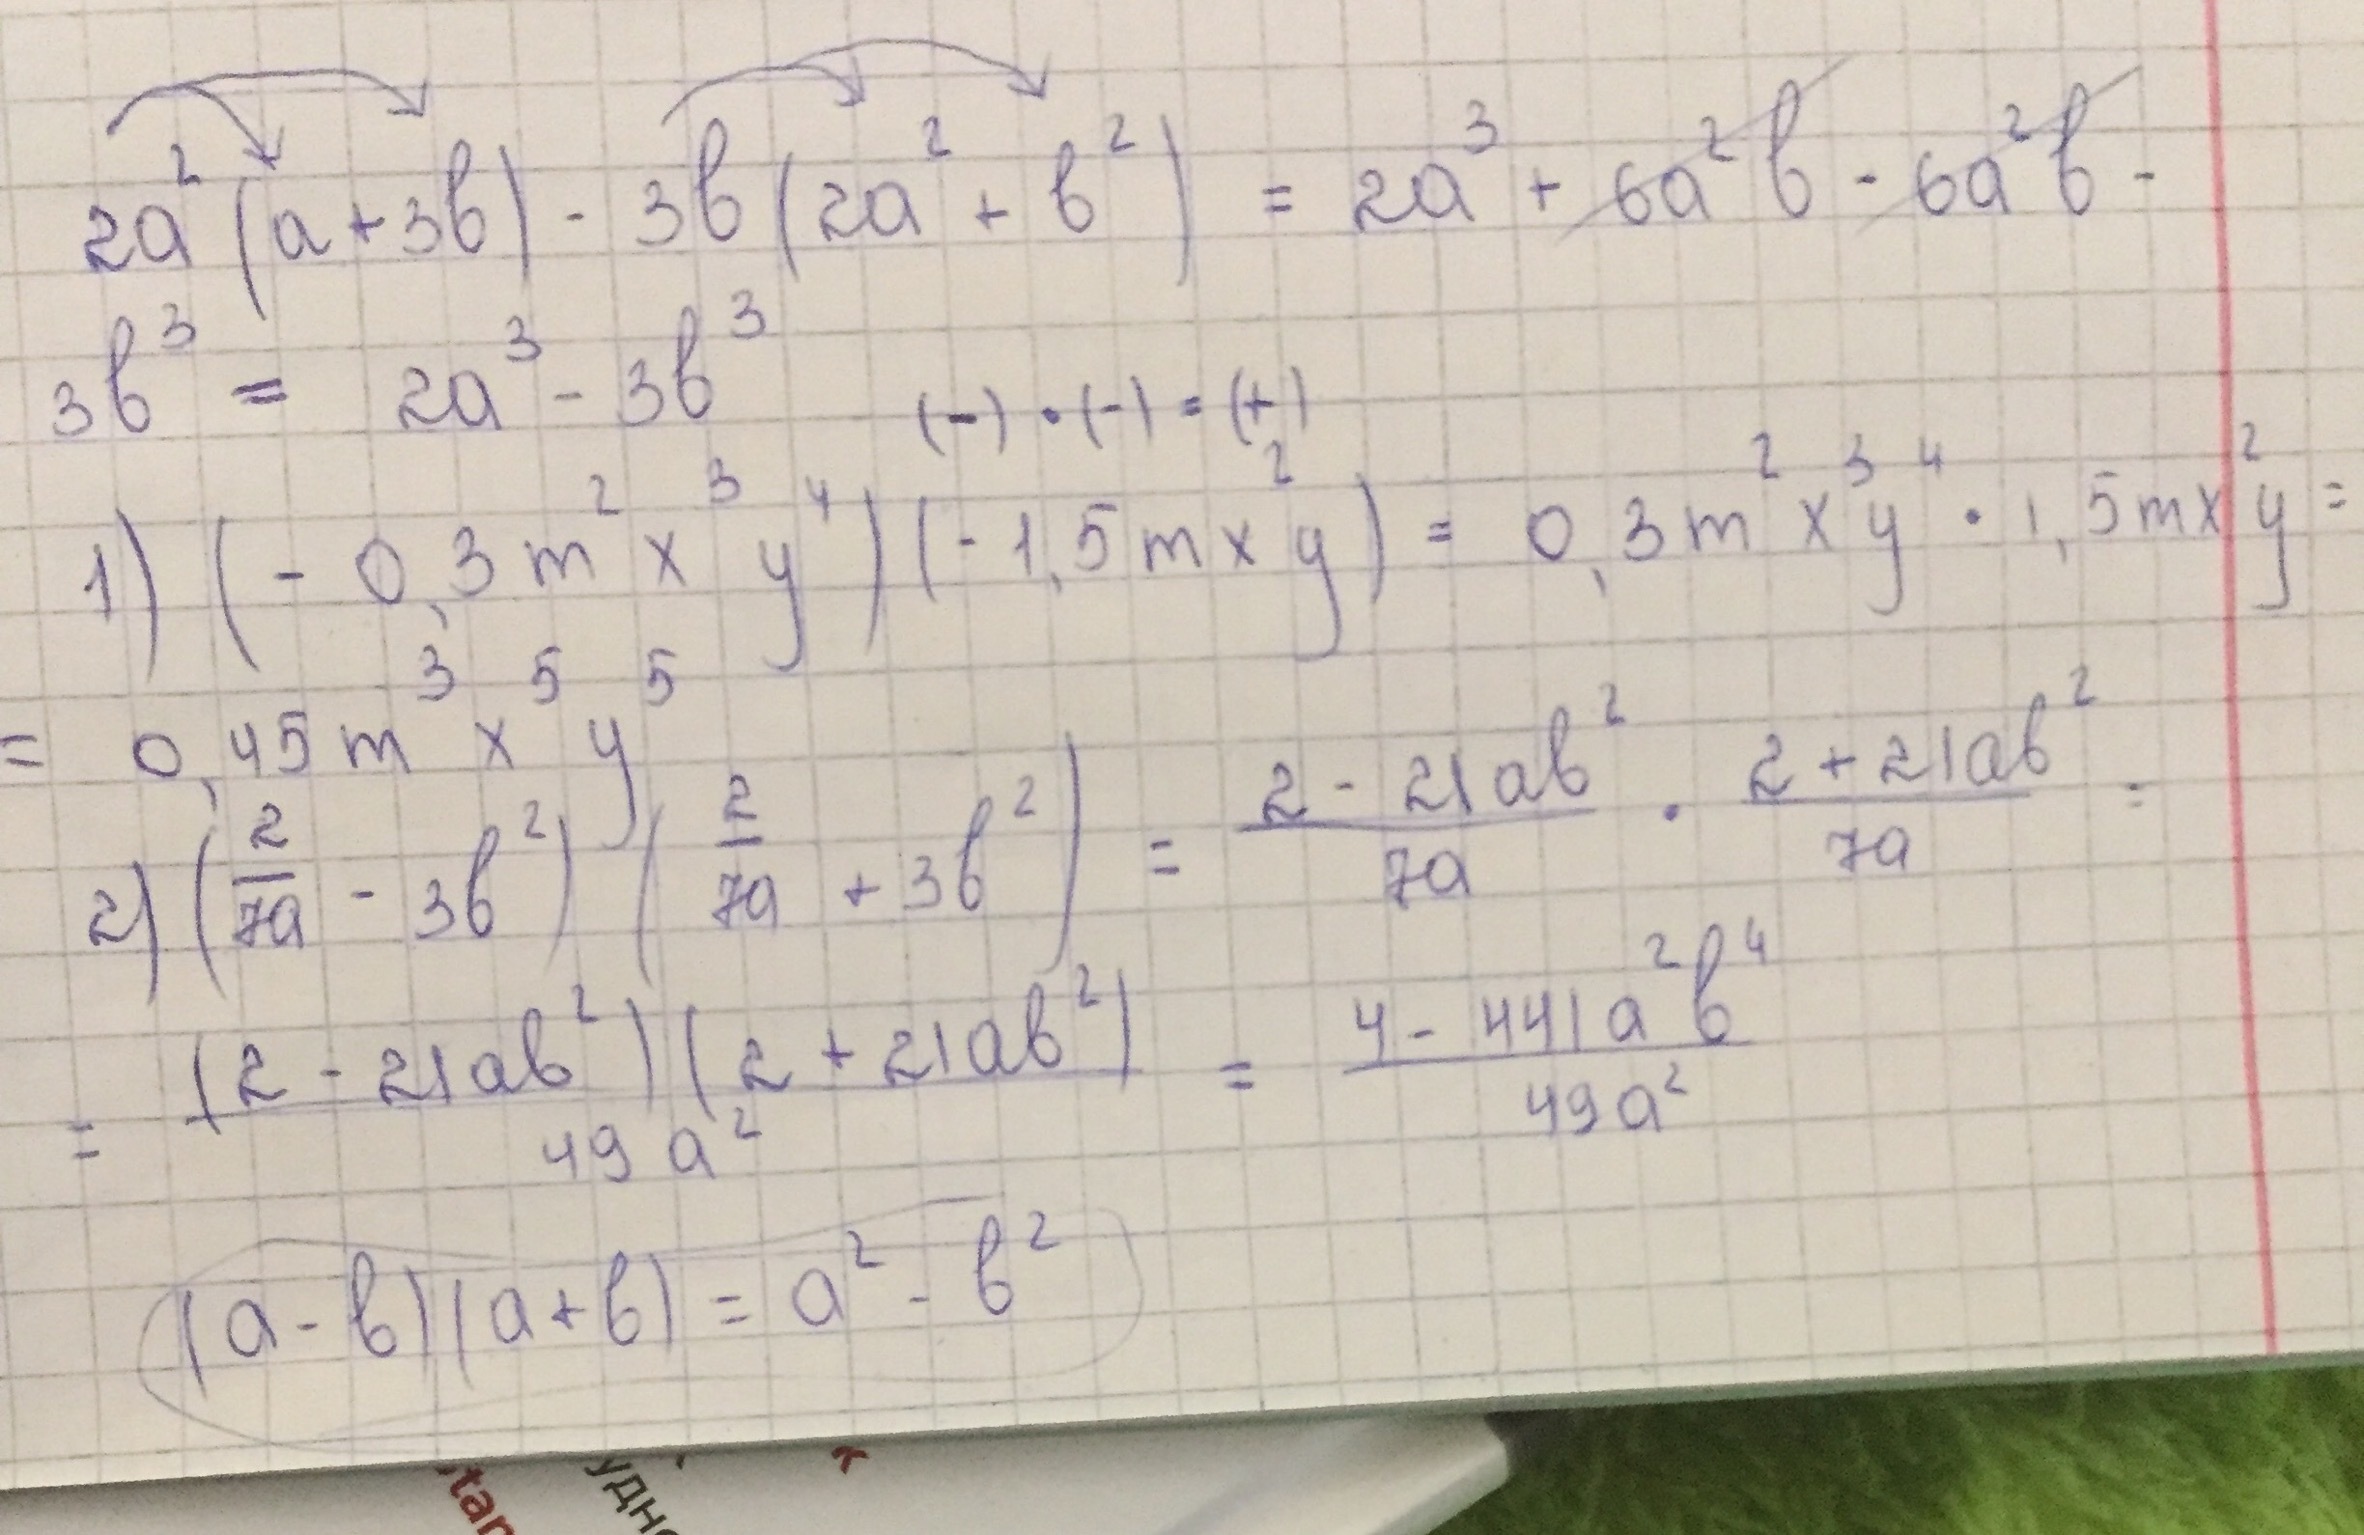 2a²(a+3b) - 3b(2a² + b²) = 2a³ + 6a²b - 6a²b -
3b³ = 2a³ - 3b³
(-)·(-) = (+)
1) (-0,3m²x³y⁴)(-1,5mx²y) = 0,3m²x³y⁴ · 1,5mx²y =
= 0,45m³x⁵y⁵
2) (2/7a - 3b²)(2/7a + 3b²) = (2 - 21ab²)/7a · (2 + 21ab²)/7a =
= (2 - 21ab²)(2 + 21ab²)/49a² = (4 - 441a²b⁴)/49a²
(a-b)(a+b) = a² - b²